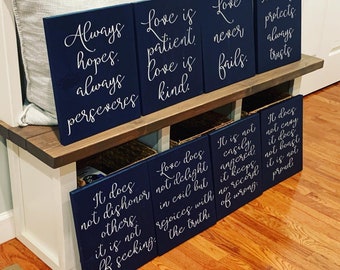 Always
hopes.
always
perseveres
Love is
patient,
love is
kind.
Love
never
fails.
protects,
always
trusts.
It does
not dishonor
others,
it is not
self seeking.
Love does
not delight
in evil but
rejoices with
the truth
It is not
easily
angered,
it keeps
no record
of wrong.
It does
not envy
it does
not boast
it is not
proud